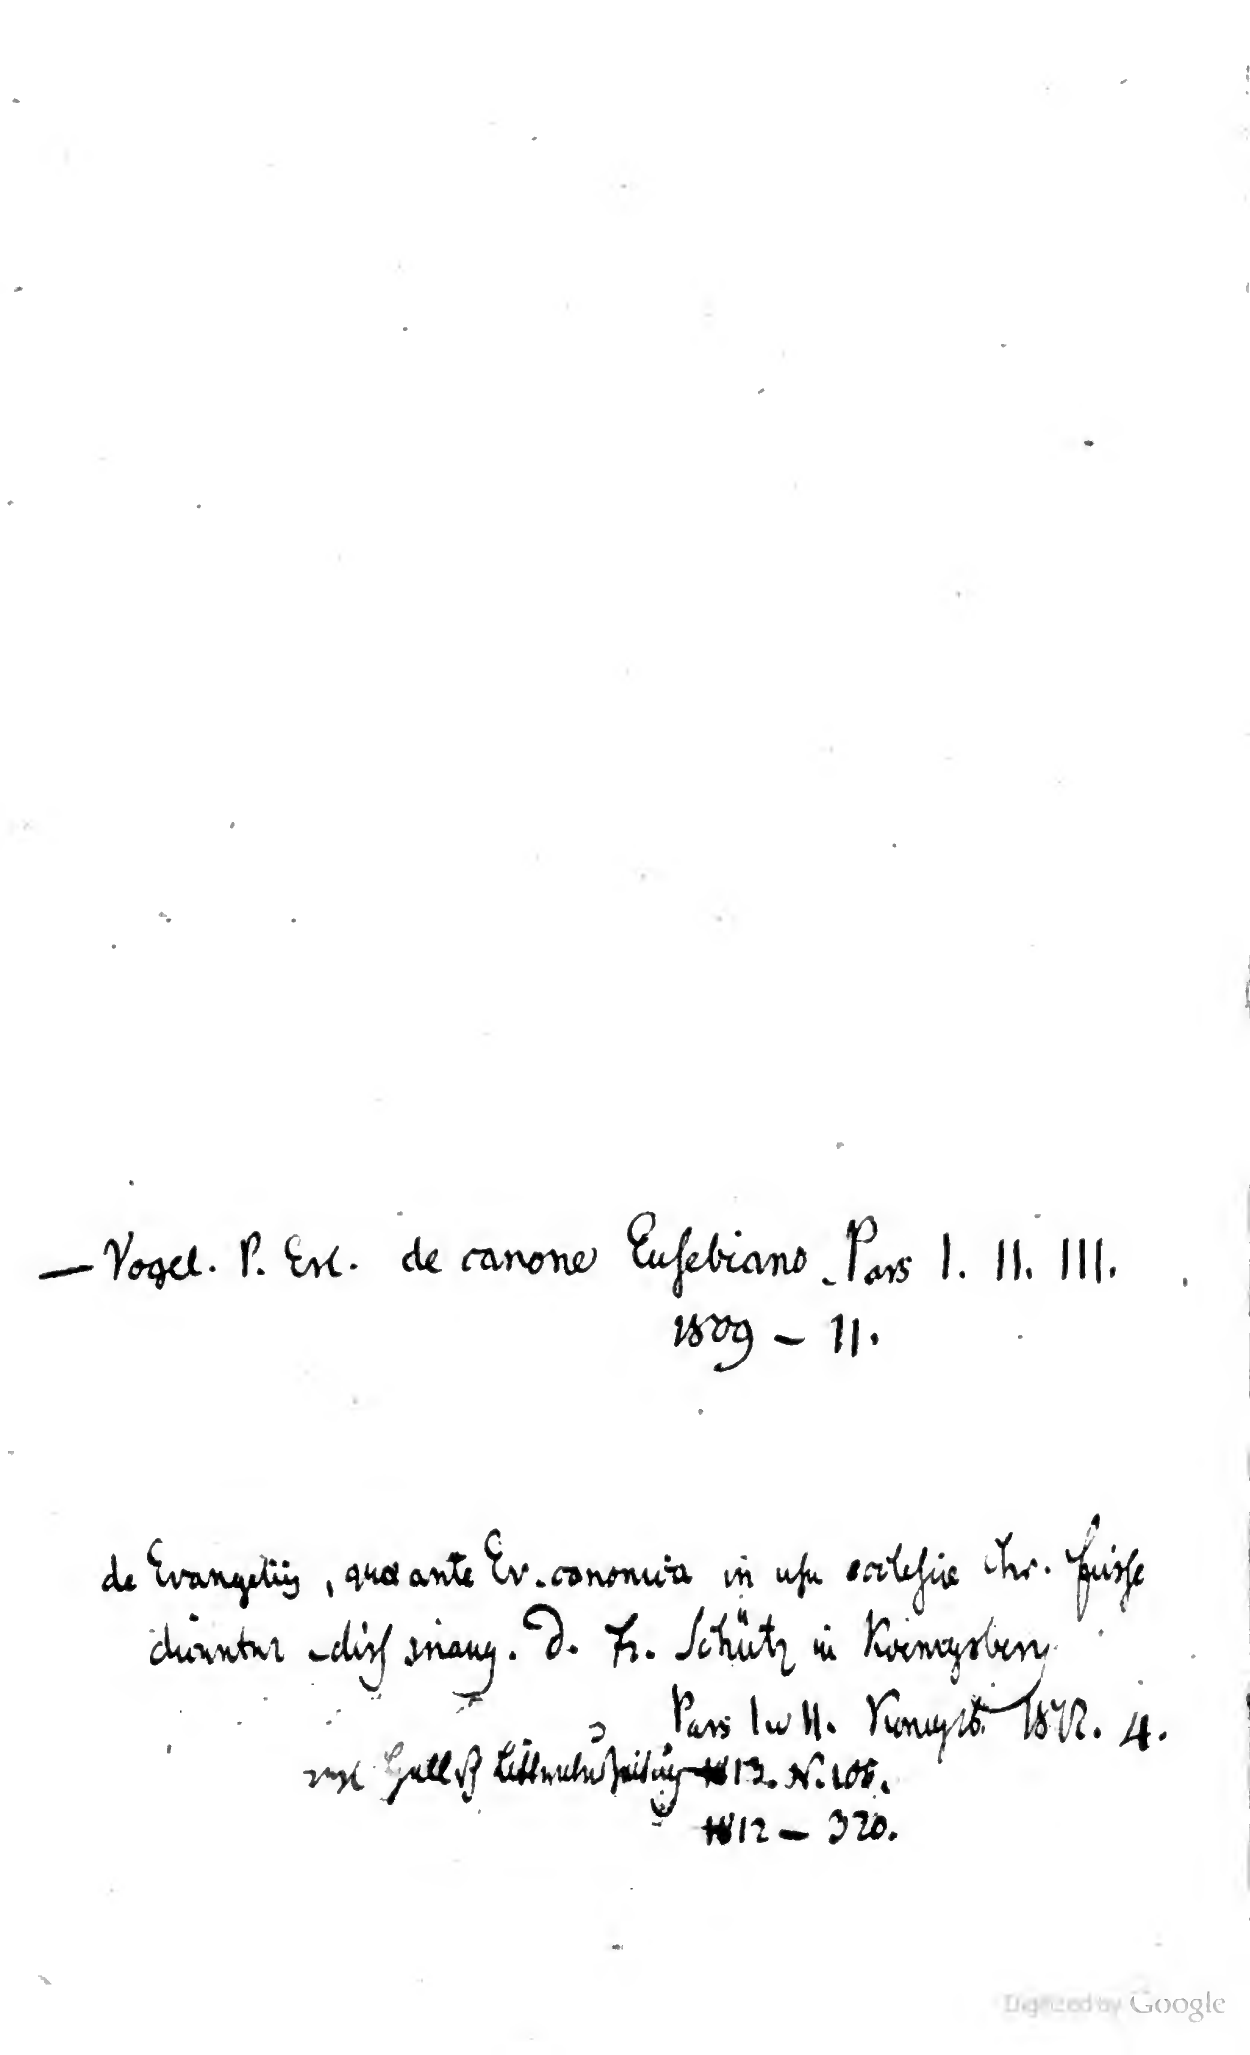 — Vogel. P. Erl. de canone Eusebiano. Pars I. II. III.
1809 – 11.
de Evangeliis, quae ante Ev. canonica in usu ecclesiae chr. fuisse
dicuntur diss inaug. D. Fr. Schütz in Koenigsberg
Pars I u II. Koenigsb. 1812. 4.
vgl Hall. Litteratur Zeitung 1813. N. 106.
1812 – 320.
Digitized by Google